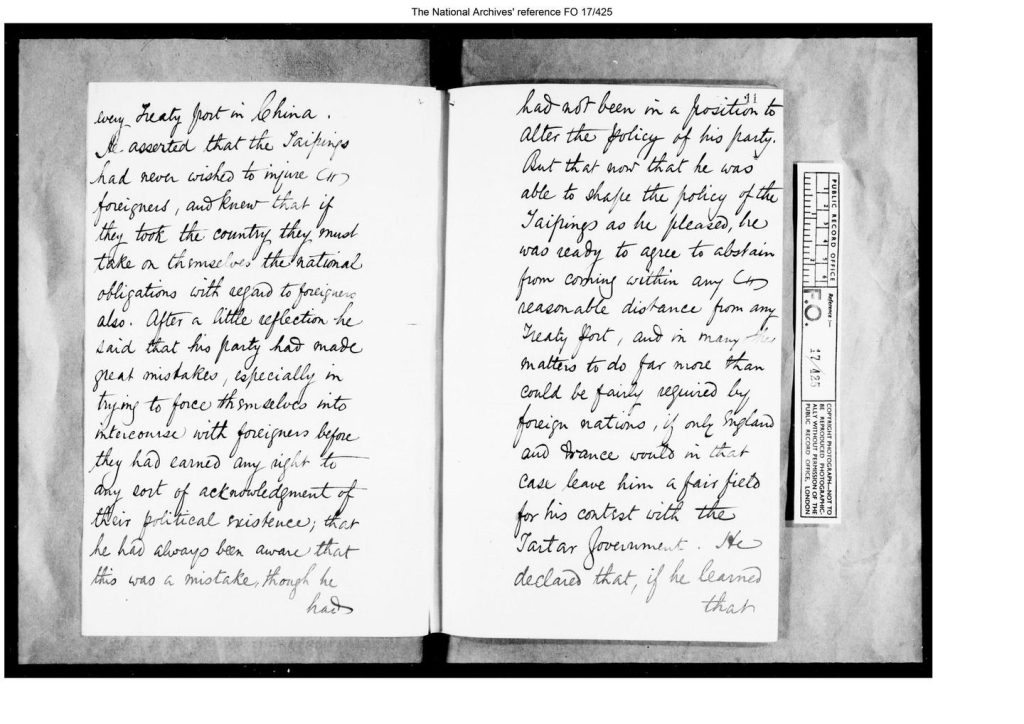 The National Archives' reference FO 17/425
every Treaty Port in China.
He asserted that the Taipings
had never wished to injure
foreigners, and knew that if
they took the country they must
take on themselves the national
obligations with regard to foreigners
also. After a little reflection he
said that his party had made
great mistakes, especially in
trying to force themselves into
intercourse with foreigners before
they had earned any right to
any sort of acknowledgment of
their political existence; that
he had always been aware that
this was a mistake, though he
had
had not been in a position to
alter the policy of his party.
But that now that he was
able to shape the policy of the
Taipings as he pleased, he
was ready to agree to abstain
from coming within any
reasonable distance from any
Treaty Port, and in many
matters to do far more than
could be fairly required by
foreign nations, if only England
and France would in that
case leave him a fair field
for his contest with the
Tartar Government. He
declared that, if he learned
that
PUBLIC RECORD OFFICE
1 2 3 4 5 6
Reference :-
F.O. 17/425
COPYRIGHT PHOTOGRAPH—NOT TO
BE REPRODUCED PHOTOGRAPHIC-
ALLY WITHOUT PERMISSION OF THE
PUBLIC RECORD OFFICE, LONDON